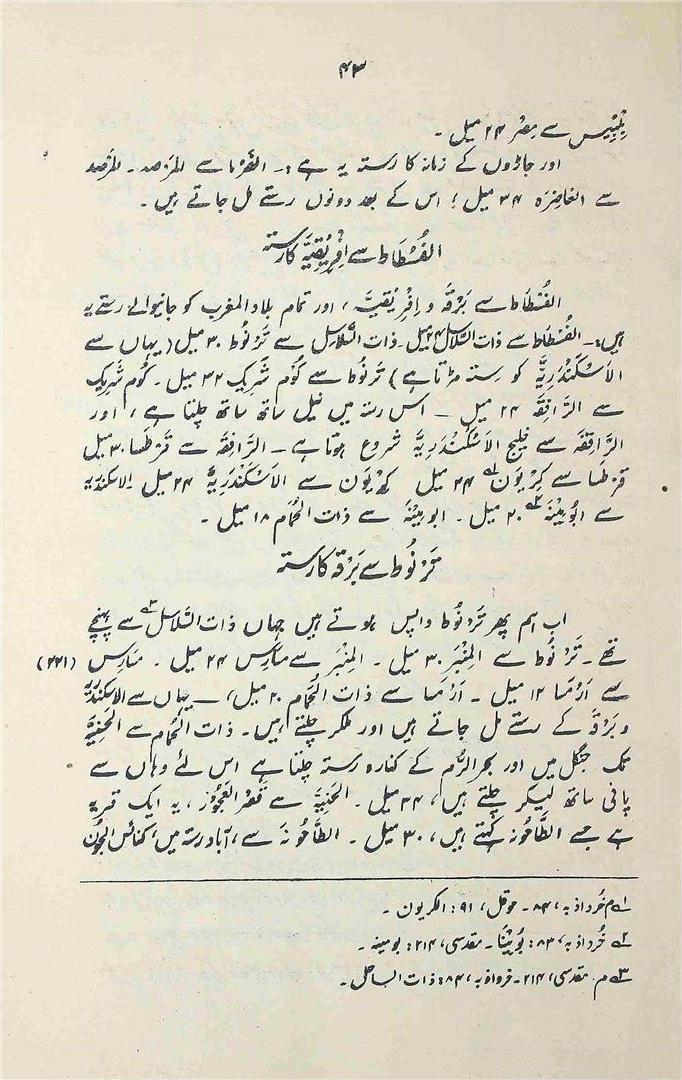 ۴۳
بِلْبِیْس سے مِصْر ۲۴ میل ۔
اور جاڑوں کے زمانہ کا رستہ یہ ہے :۔ الفَرَما سے المَرْصد ۔ المَرْصد
سے الغاضِرَہ ۳۴ میل ؛ اس کے بعد دونوں رستے مل جاتے ہیں ۔
الفُسْطَاط سے اِفْرِیْقِیَّہ کا رستہ
الفُسْطَاط سے بَرْقَہ و اِفْرِیْقِیَّہ ، اور تمام بلاد المغرب کو جانیوالے رستے یہ
ہیں :۔ الفُسْطَاط سے ذات السَّلَاسِل ۲۴ میل ۔ ذات السَّلَاسِل سے تَرْنُوط ۳۰ میل ( یہاں سے
الاَسْکَنْدَرِیَّہ کو رستہ مڑتا ہے ) تَرنُوط سے کُوْم شَرِیْک ۲۲ میل ۔ کُوْم شَرِیْک
سے الرَّافِقَہ ۲۴ میل ۔ اس رستہ میں نیل ساتھ ساتھ چلتا ہے ، اور
الرَّافِقَہ سے خلیج الاَسْکَنْدَرِیَّہ شروع ہوتا ہے ۔ الرَّافِقَہ سے قَرْطَسا ۳۰ میل
قَرْطَسا سے کِرْیَون ؁۱ ۲۴ میل کِرْیَون سے الاَسْکَنْدَرِیَّہ ۲۴ میل الاسکندریہ
سے ابُو مِیْنَہ ؁۲ ۲۰ میل ۔ ابو مِیْنَہ سے ذات الحُمَام ۱۸ میل ۔
تَرْنُوط سے بَرْقَہ کا رستہ
اب ہم پھر تَرْنُوط واپس ہوتے ہیں جہاں ذات السَّلَاسل ؁۳ سے پہنچے
تھے ۔ تَرْنُوط سے المِنْبَر ۳۰ میل ۔ المِنْبَر سے مَنَارِس ۲۴ میل ۔ مَنَارِس (۲۲۱)
سے اَرْمَسا ۱۲ میل ۔ اَرْمَسا سے ذات الحُمَام ۲۰ میل ، ۔ یہاں سے الاسکندریہ
و بَرْقَہ کے رستے مل جاتے ہیں اور ملکر چلتے ہیں ۔ ذات الحُمَام سے الحَنِیَّہ
تک جنگل میں اور بحر الرُّوم کے کنارہ رستہ چلتا ہے اس لئے وہاں سے
پانی ساتھ لیکر چلتے ہیں ، ۳۴ میل ۔ الحَنِیَّہ سے قصر العَجُوْز ، یہ ایک قریہ
ہے جسے الطَّاحُونہ کہتے ہیں ، ۳۰ میل ۔ الطَّاحُونَہ سے ، آباد رستہ میں ، کنائس الجُوْن
؁۱ م خُرداذبہ ، ۸۴ ۔ حوقل ، ۹۱ : الکریون ۔
؁۲ خُرداذبہ ، ۸۳ : بُوْمِیْنَا ۔ مقدسی ، ۲۱۴ : بومینہ ۔
؁۳ م ۔ مقدسی ، ۲۱۴ ۔ خرداذبہ ، ۸۴ : ذات الساحل ۔